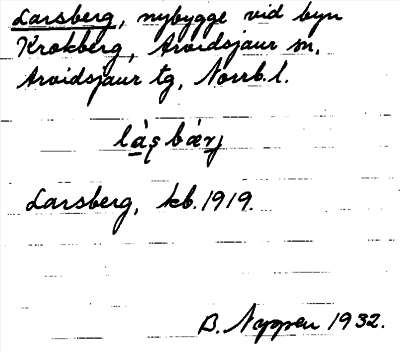 Larsberg, nybygge vid byn
Krokberg, Arvidsjaur sn,
Arvidsjaur tg, Norrb. l.
Larsberg, kb. 1919.
B. 1932.